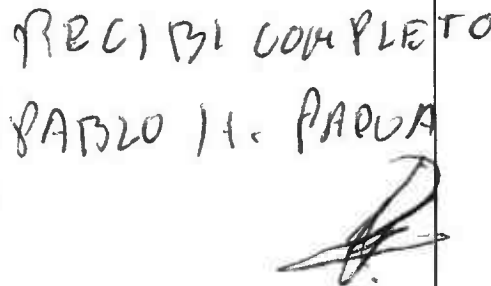 RECIBI COMPLETO
PABLO H. PADUA